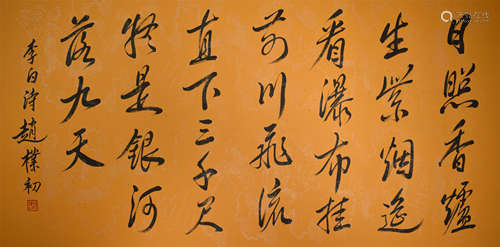 日照香爐
生紫烟遙
看瀑布挂
前川飛流
直下三千尺
疑是銀河
落九天
李白詩趙樸初